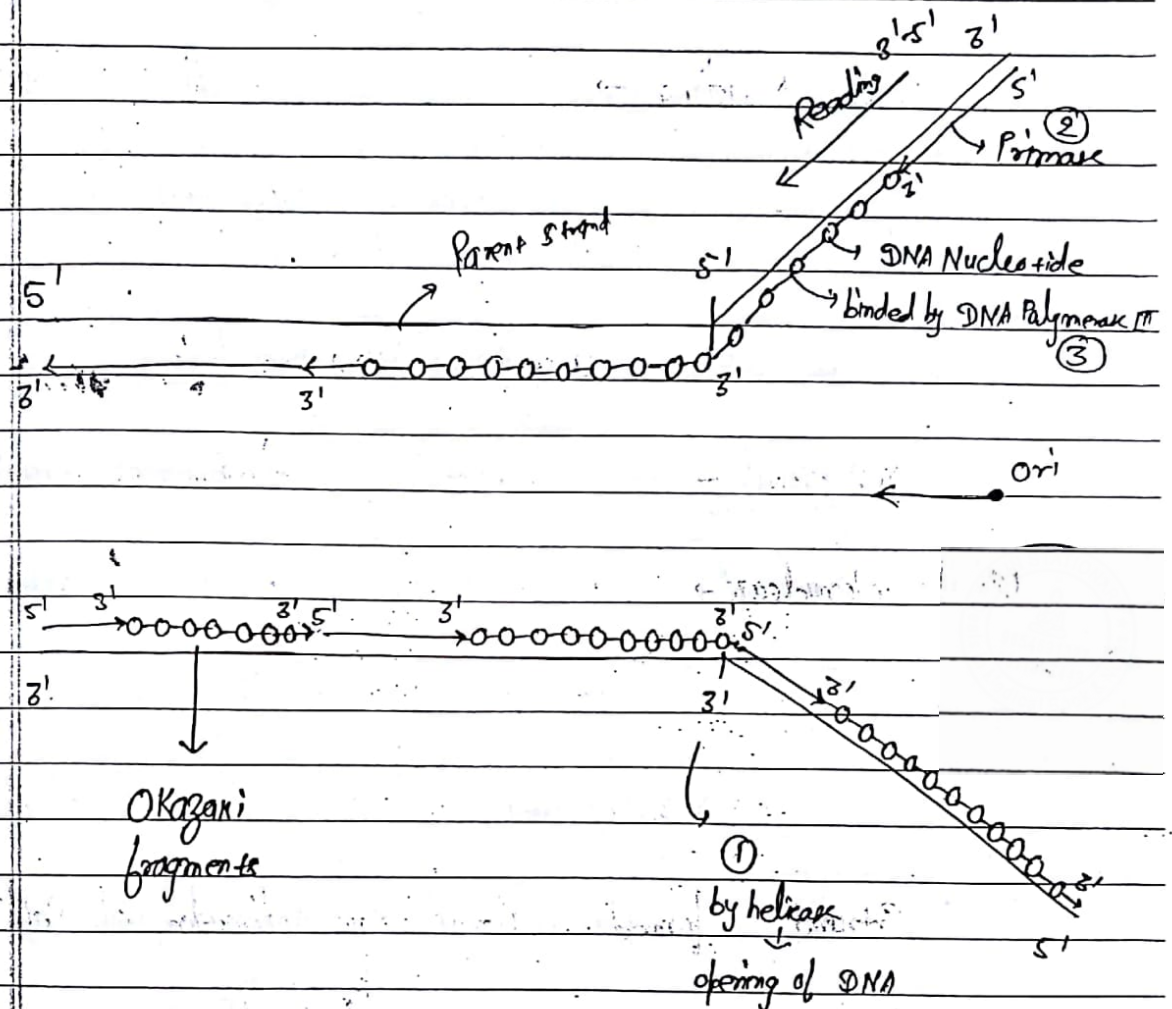 3'-5' 3'
5'
Reading
② Primase
3'
Parent strand
DNA Nucleotide
5'
5'
binded by DNA Polymerase III
③
3' 3' 3'
Ori
5' 3' 3' 5' 3' 3' 5'
3' 3' 3'
Okazaki
fragments
①
by helicase
3'
5'
opening of DNA